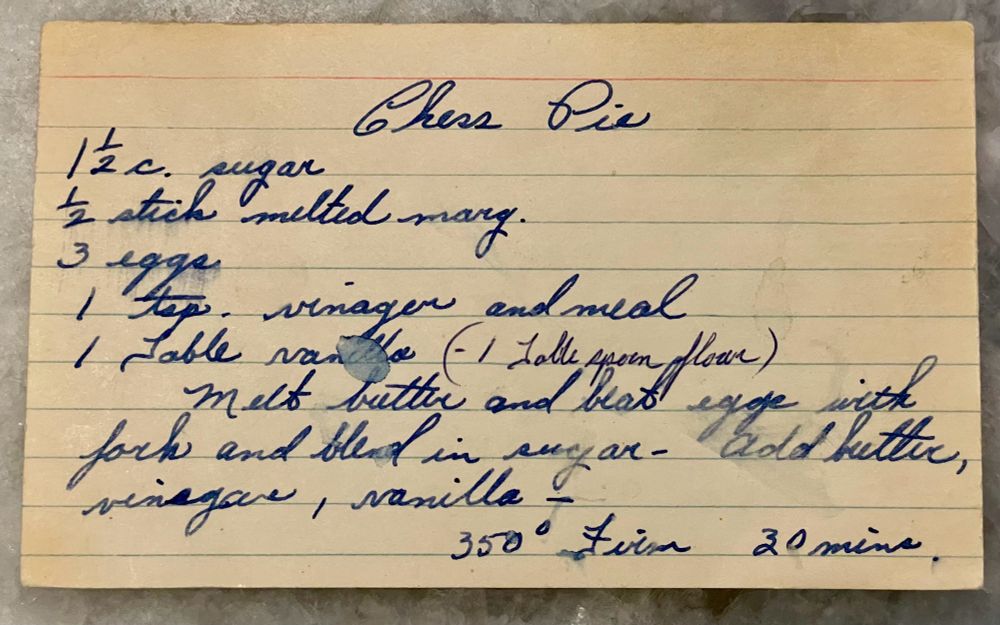 Chess Pie
1 1/2 c. sugar
1/2 stick melted marg.
3 eggs
1 tsp. vinager and meal
1 Table vanilla (- 1 Tablespoon flour)
Melt butter and beat eggs with
fork and blend in sugar - add butter,
vinegar, vanilla -
350° Firm 30 mins.